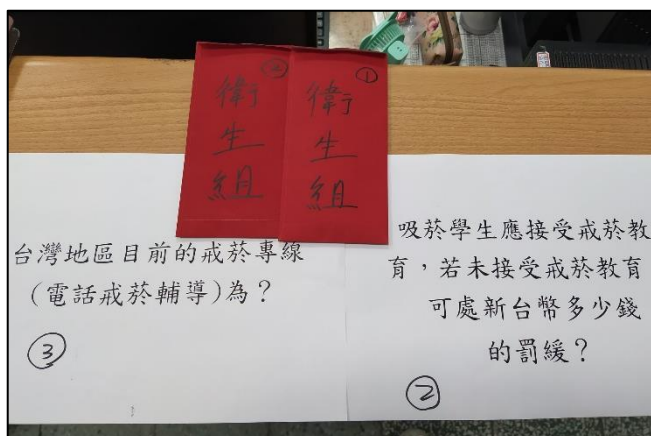 ②
衛生組
①
衛生組
台灣地區目前的戒菸專線
(電話戒菸輔導)為？
③
吸菸學生應接受戒菸教
育，若未接受戒菸教育
可處新台幣多少錢
的罰緩？
②